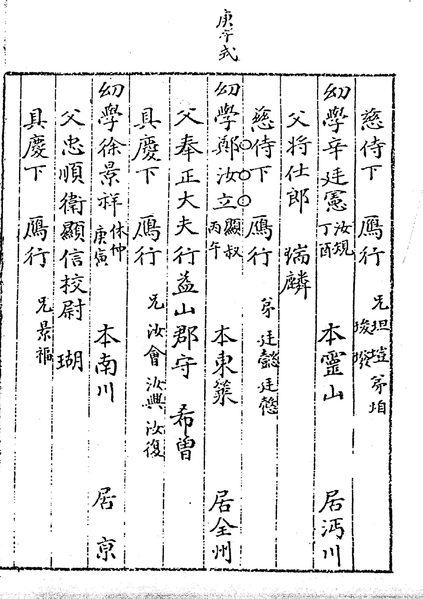 庚午式
慈侍下 鴈行 兄坦塏 弟垍 埈
幼學辛廷憲 汝規 丁酉 本靈山 居沔川
父將仕郎 瑞麟
慈侍下 鴈行 弟廷懿廷
幼學鄭汝立 顯叔 丙午 本東萊 居全州
父奉正大夫行益山郡守 希曾
具慶下 鴈行 兄汝會 汝興 汝復
幼學徐景祥 休仲 庚寅 本南川 居京
父忠順衛顯信校尉 瑚
具慶下 鴈行 兄景福